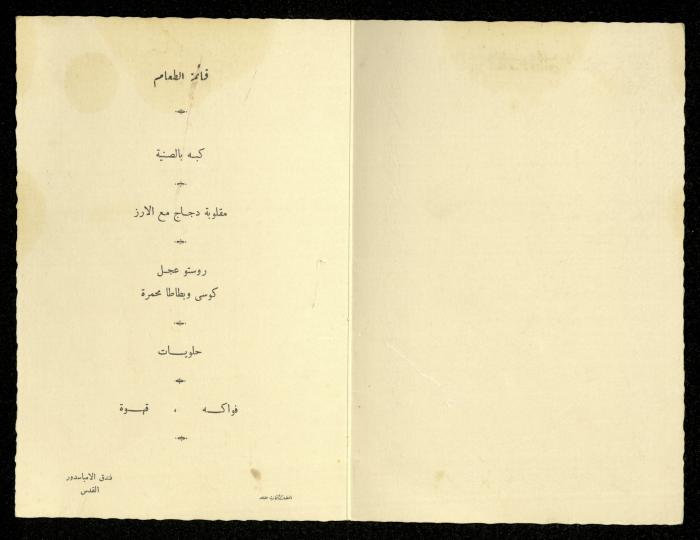 قائمة الطعام
كبه بالصنية
مقلوبة دجاج مع الارز
روستو عجل
كوسى وبطاطا محمرة
حلويات
فواكه ، قهوة
فندق الامباسدور
القدس